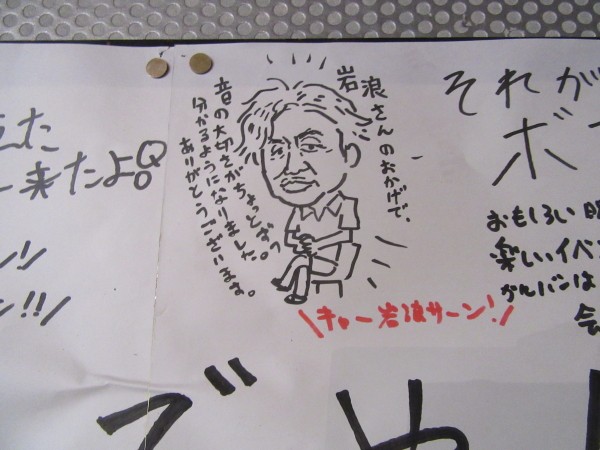 えた
来たよ。
岩浪さんのおかげで、
音の大切さがちょっとずつ
分かるようになりました。
ありがとうございます。
\キャー岩浪サーン!/
それが
ボ
おもしろい
楽しいイベン
かんバンは
会
でや